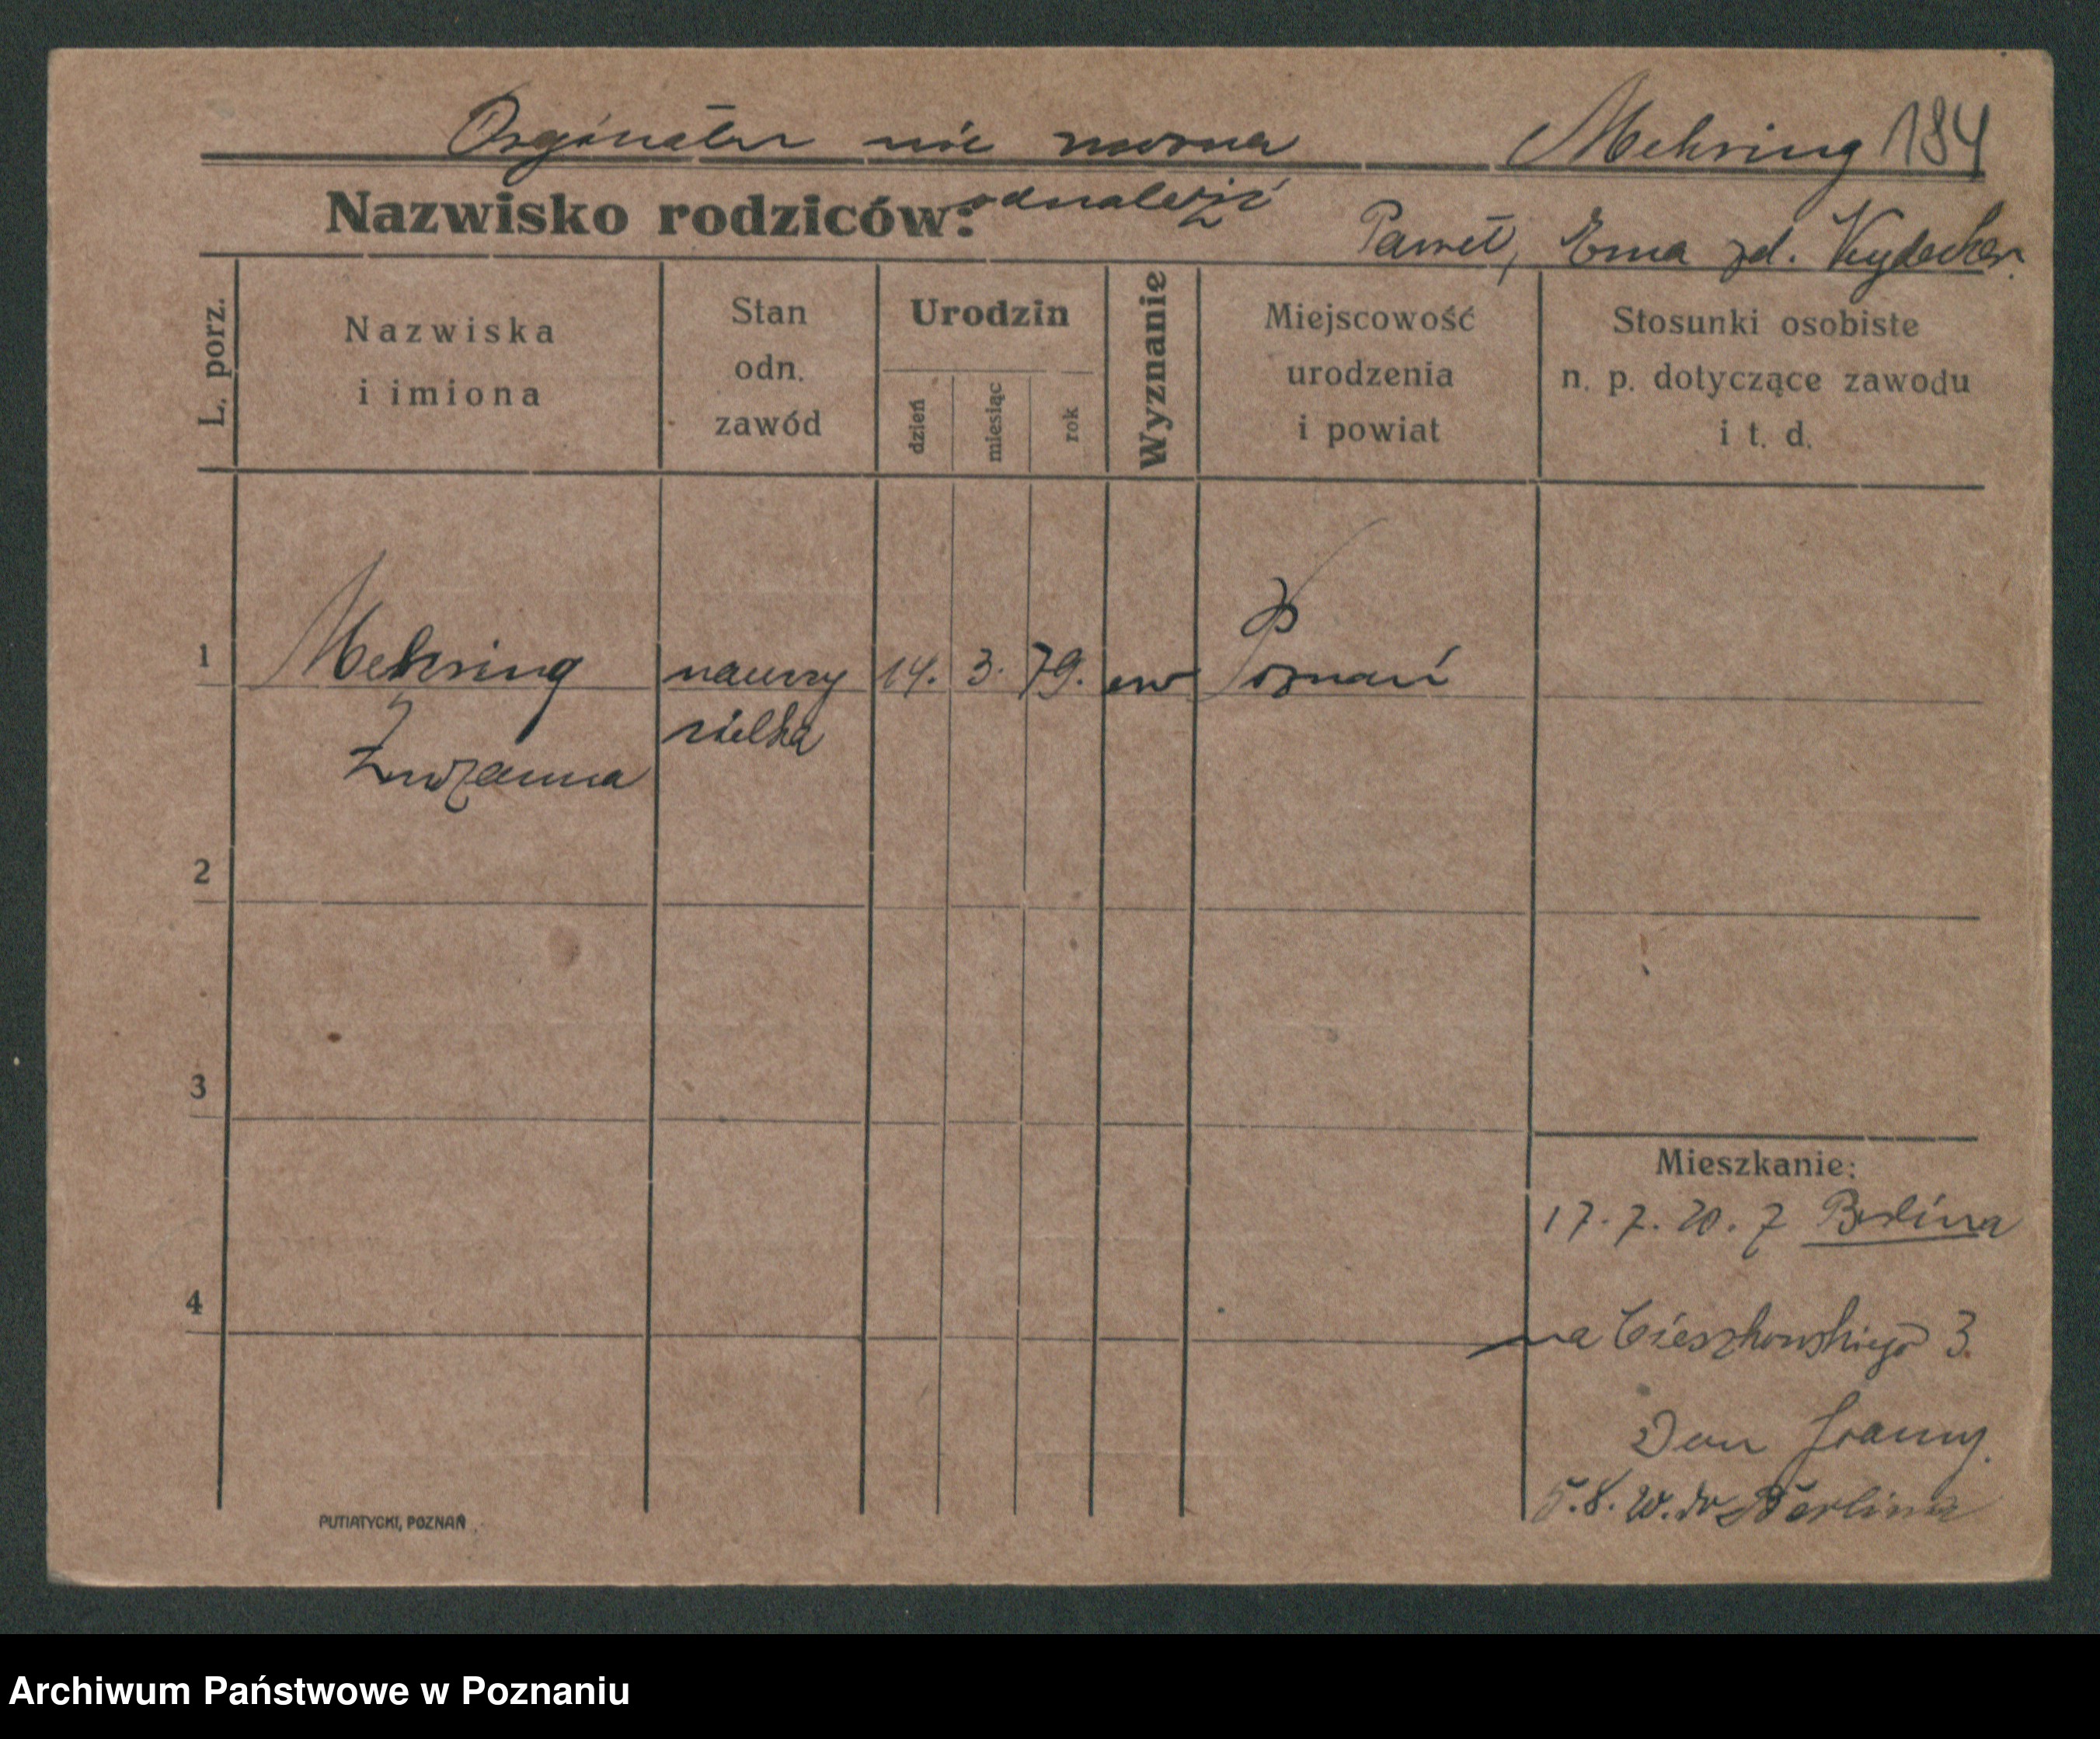 Orginału nie można Mehring 184
Nazwisko rodziców: odnaleźć
Paweł, Erna zd.
L. porz.
Nazwiska
i imiona
Stan
odn.
zawód
Urodzin
dzień
miesiąc
rok
Wyznanie
Miejscowość
urodzenia
i powiat
Stosunki osobiste
n. p. dotyczące zawodu
i t. d.
1 Mehring nauczy 14. 3. 79. ew Poznań
Zuzanna cielka
2
3
4
Mieszkanie:
17. 7. 20. z Berlina
na Cieszkowskiego 3.
Dom Joanny.
5. 8. 20. do Berlina
PUTIATYCKI, POZNAŃ
Archiwum Państwowe w Poznaniu